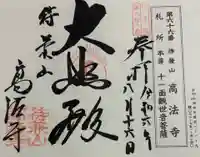 第六十六番 山 高法寺
札所本尊 十一面観世音菩薩
奉拝 令和六年八月十六日
大悲殿
山
高法寺